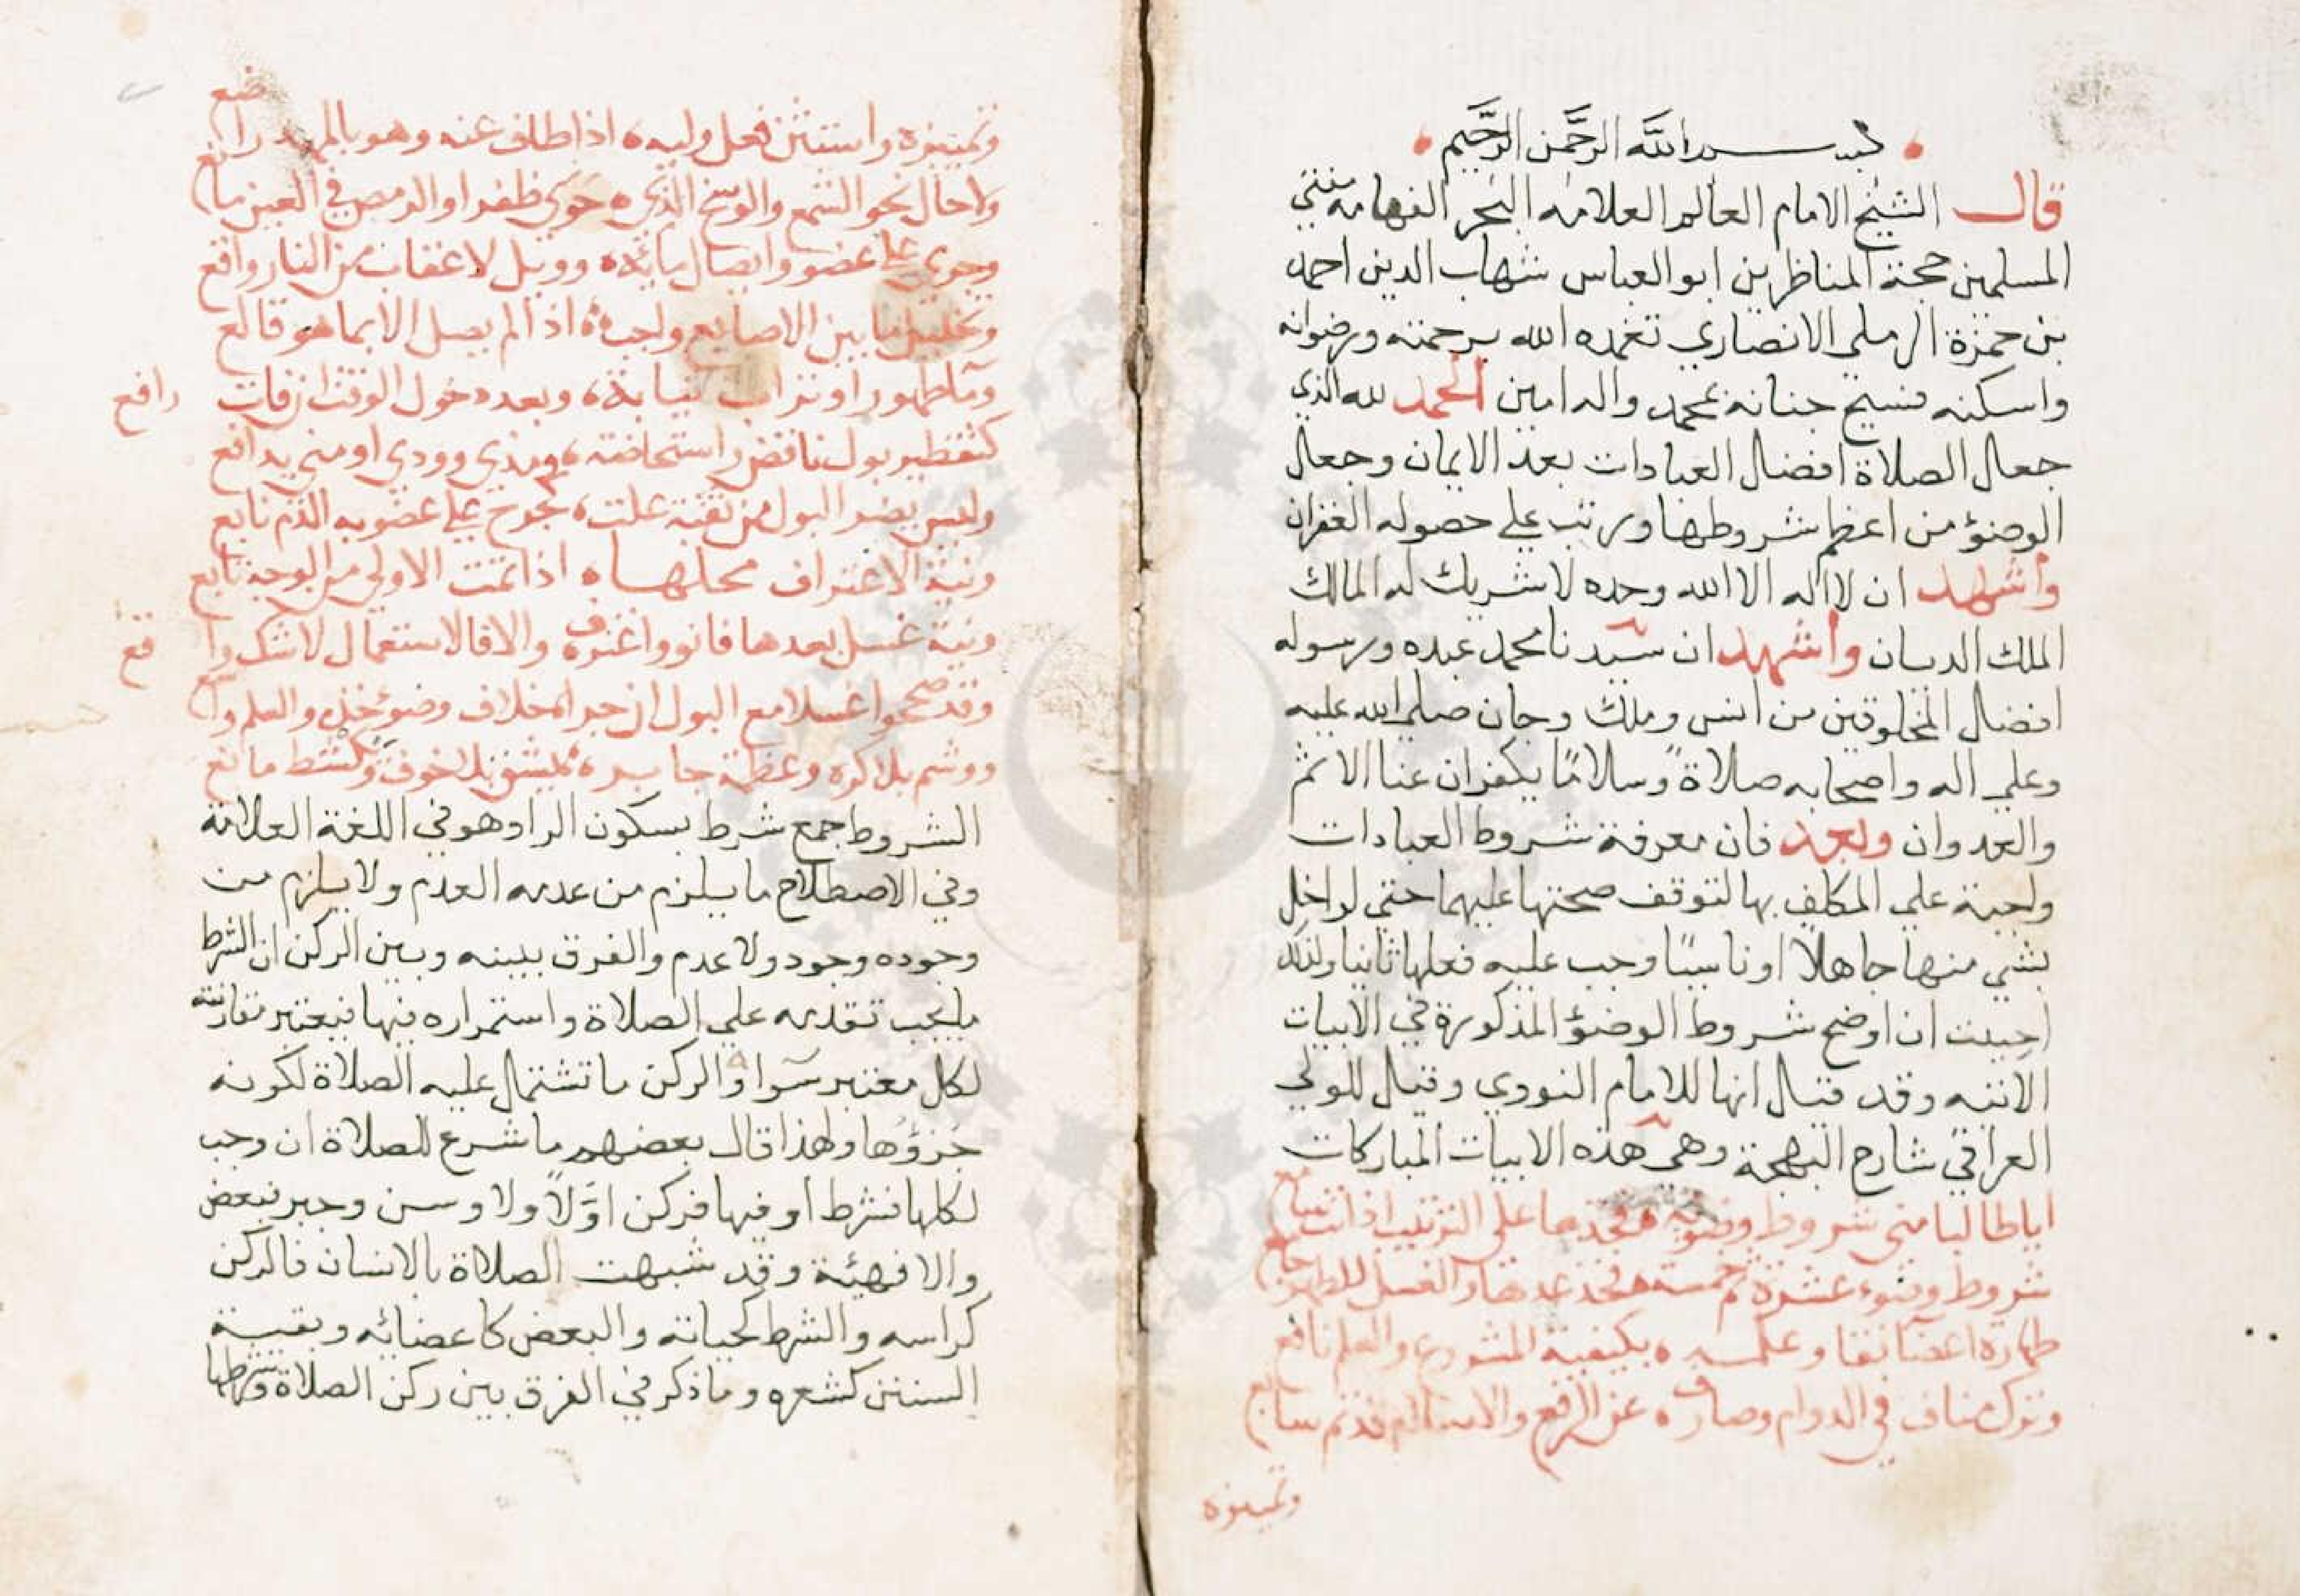 بسم الله الرحمن الرحيم
قال الشيخ الامام العالم العلامه البحر الفهامه مفتي
المسلمين حجة المناظرين ابو العباس شهاب الدين احمد
بن حمزة الرملي الانصاري تغمده الله برحمته ورضوانه
واسكنه فسيح جنانه بمحمد واله امين الحمد لله الذي
جعل الصلاة افضل العبادات بعد الايمان وجعل
الوضؤ من اعظم شروطها ورتب علي حصوله الغفران
واشهد ان لا اله الا الله وحده لا شريك له المالك
الملك الديان واشهد ان سيدنا محمد عبده ورسوله
افضل المخلوقين من انس وملك وجان صلي الله عليه
وعلي اله واصحابه صلاةً وسلامًا يكفران عنا الاثم
والعدوان وبعد فان معرفة شروط العبادات
واجبة علي المكلف بها لتوقف صحتها عليهما حتي لو اخل
بشي منها جاهلاً او ناسيًا وجب عليه فعلها ثانيا ولذلك
احببت ان اوضح شروط الوضؤ المذكورة في الابيات
الاتيه وقد قيل انها للامام النووي وقيل للولي
العراقي شارح البهجة وهي هذه الابيات المباركات
ايا طالبا مني شروط وضوئه فخذها على الترتيب اذ انت سامع
شروط وضوء عشرة ثم خمسة فخذ عدها والغسل للطهر جامع
طهارة اعضا نقا وعلمه بكيفية المشروع والعلم نافع
وترك مناف في الدوام وصارف عن الرفع والاسلام قد تم سابع
وتمييزه
وتمييزه واستثن فعل وليه اذا طاف عنه وهو بالمهد راضع
ولا حال نحو الشمع والوسخ الذي حوى ظفر او الرمص في العين مانع
وجري على عضو وايصال مائه وويل لاعقاب من النار واقع
وتخليل ما بين الاصابع واجب اذا لم يصل الا بما هو قالع
وما طهور او تراب نيابة وبعد دخول الوقت ان فات رافع
كتقطير بول ناقض واستحاضة ومذي وودي او مني يدافع
وليس يضر البول من ثقبة علت كجرح على عضو به الدم نابع
ونية الاغتراف محلها اذا تمت الاولي من الوجه تابع
ونية غسل بعدها فانو واغترف والا فالاستعمال لا شك واقع
وقد صححوا غسلا مع البول ان جرا خلاف وضوء خذه والعلم واسع
ووشم بلا كره وعظمة جابر بشق بلا خوف وكشط مانع
الشروط جمع شرط بسكون الرا وهو في اللغة العلامة
وفي الاصطلاح ما يلزم من عدمه العدم ولا يلزم من
وجوده وجود ولا عدم والفرق بينه وبين الركن ان الشرط
ما يجب تقدمه علي الصلاة واستمراره فيها فيعتبر مقارنته
لكل معتبر سوا والركن ما تشتمل عليه الصلاة لكونه
جزؤها ولهذا قال بعضهم ما شرع للصلاة ان وجب
لكلها فشرط او فيها فركن اوّلاً ولا وسن وجبر فبعض
والا فهيئة وقد شبهت الصلاة بالانسان فالركن
كراسه والشرط كحياته والبعض كاعضائه وبقية
السنن كشعره وما ذكر في الفرق بين ركن الصلاة وشرطها